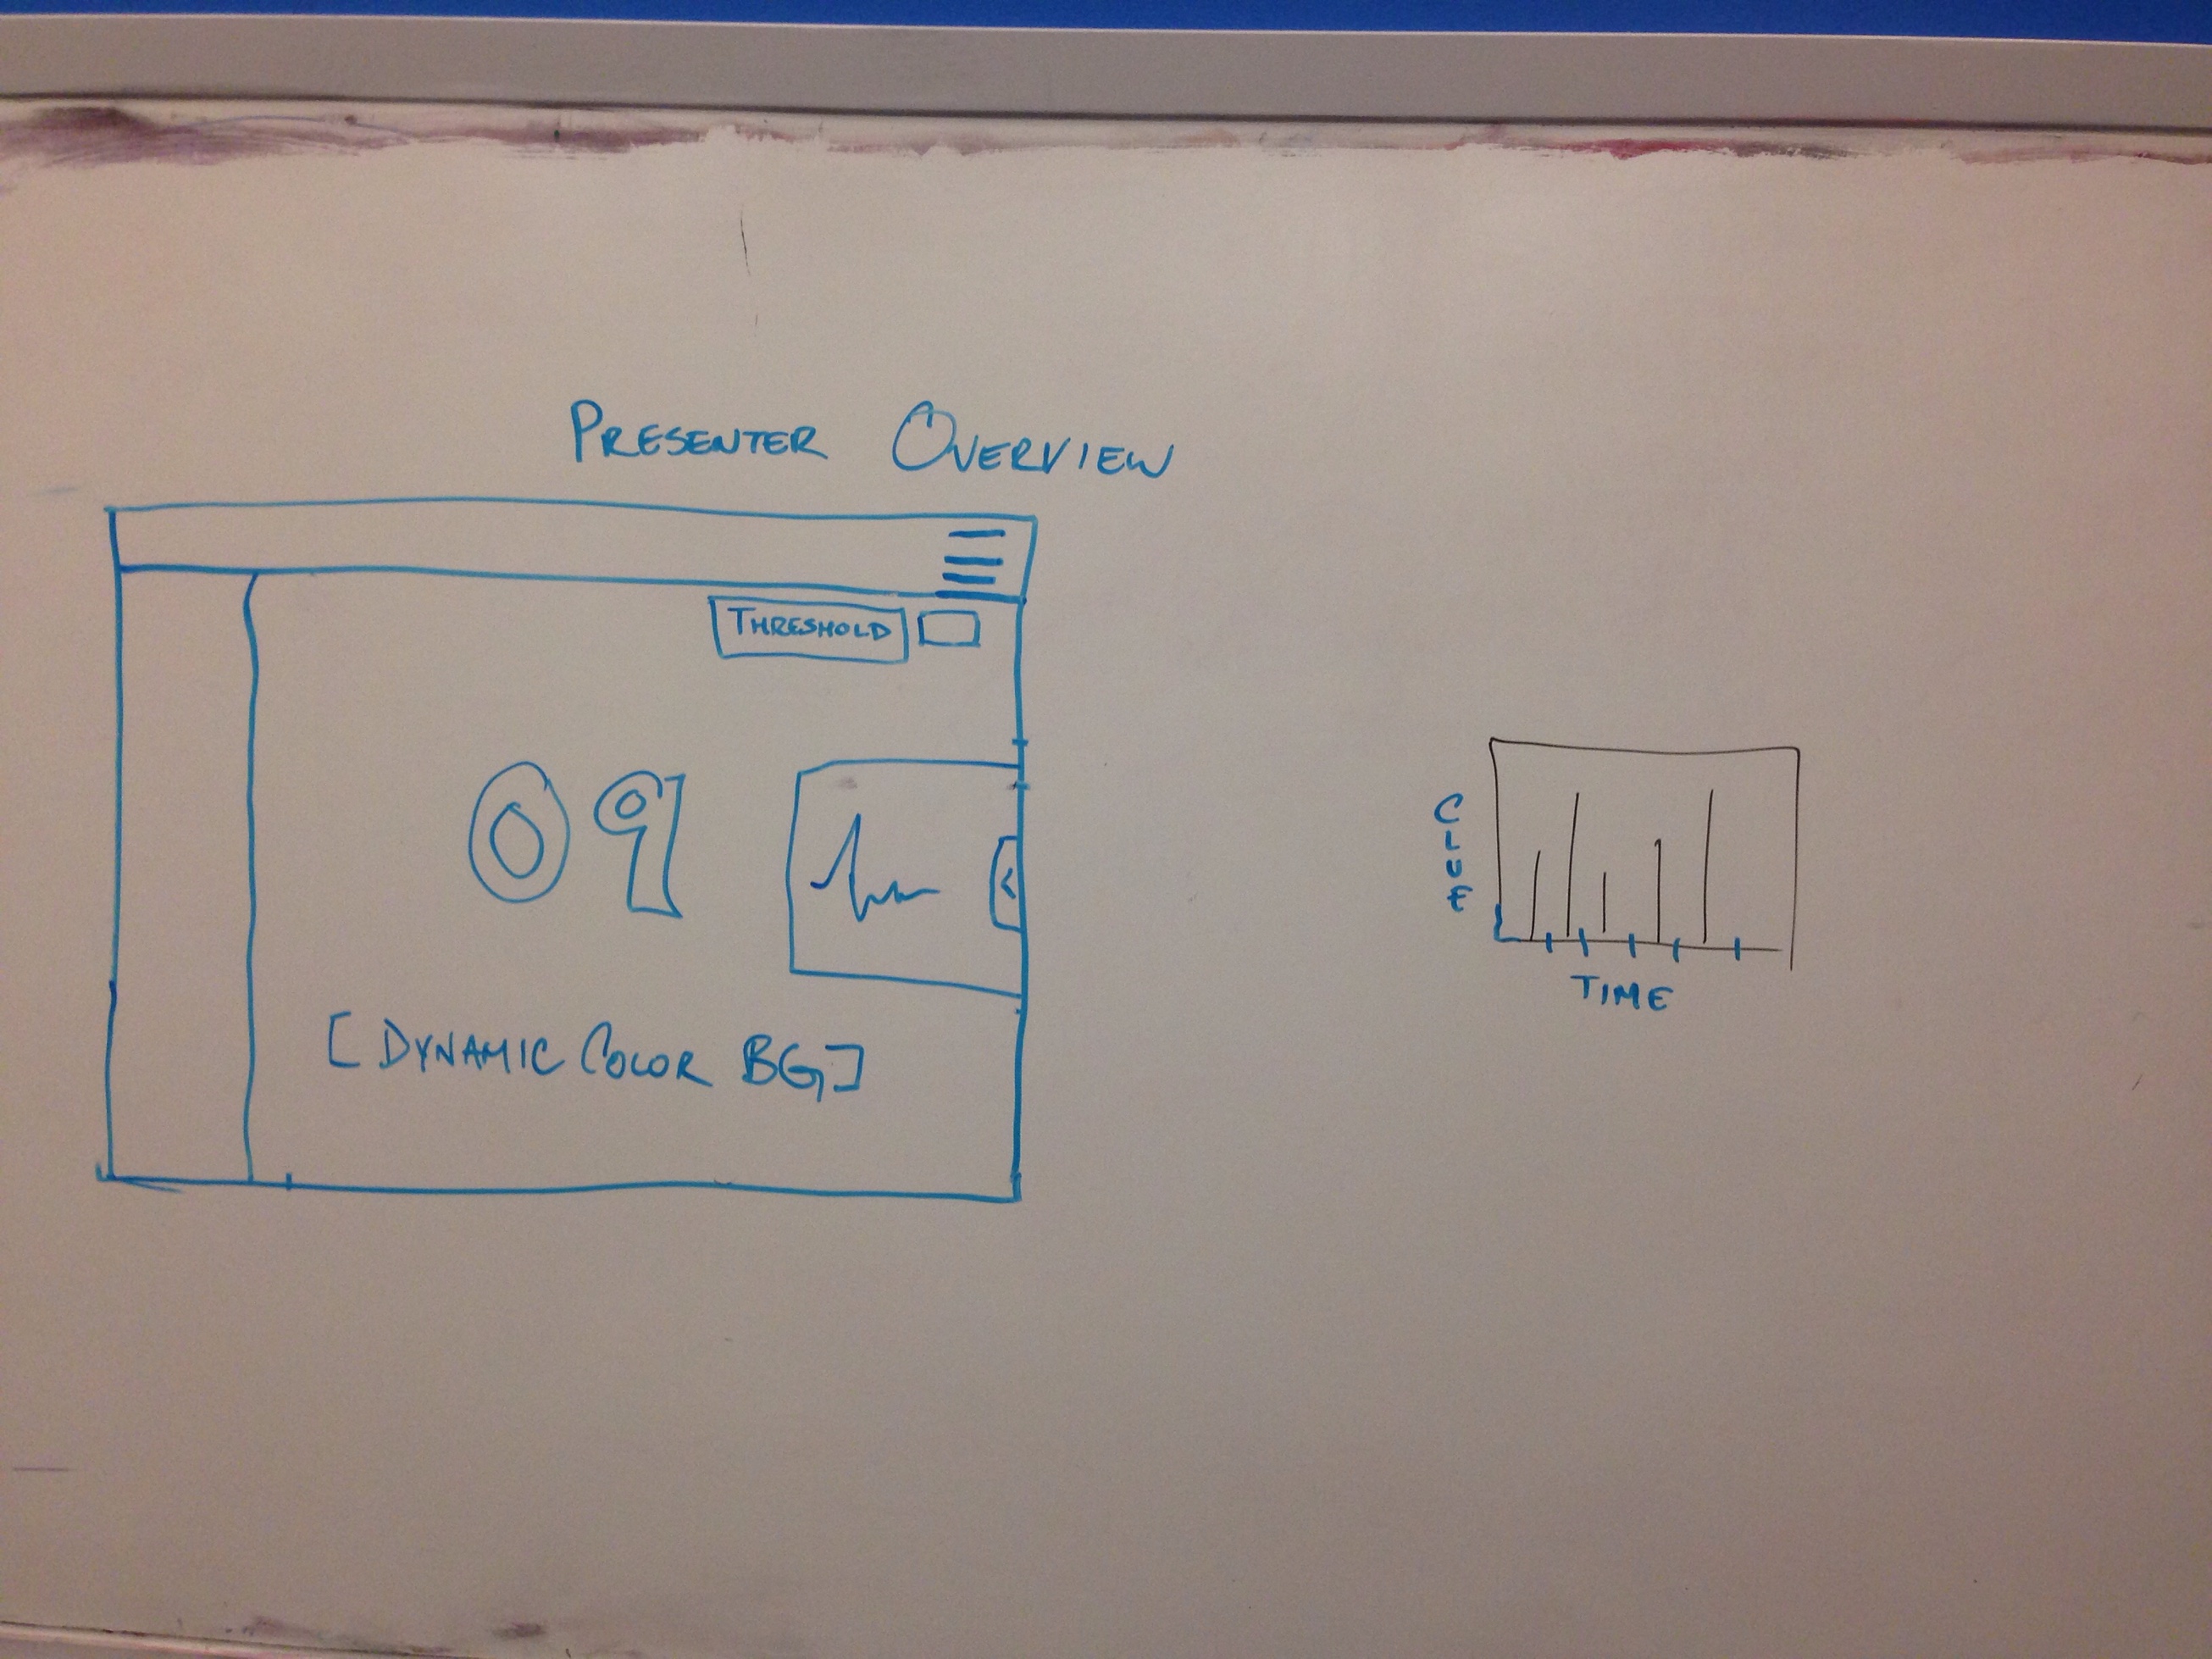 PRESENTER OVERVIEW
THRESHOLD
09
[DYNAMIC COLOR BG]
CLUE
TIME